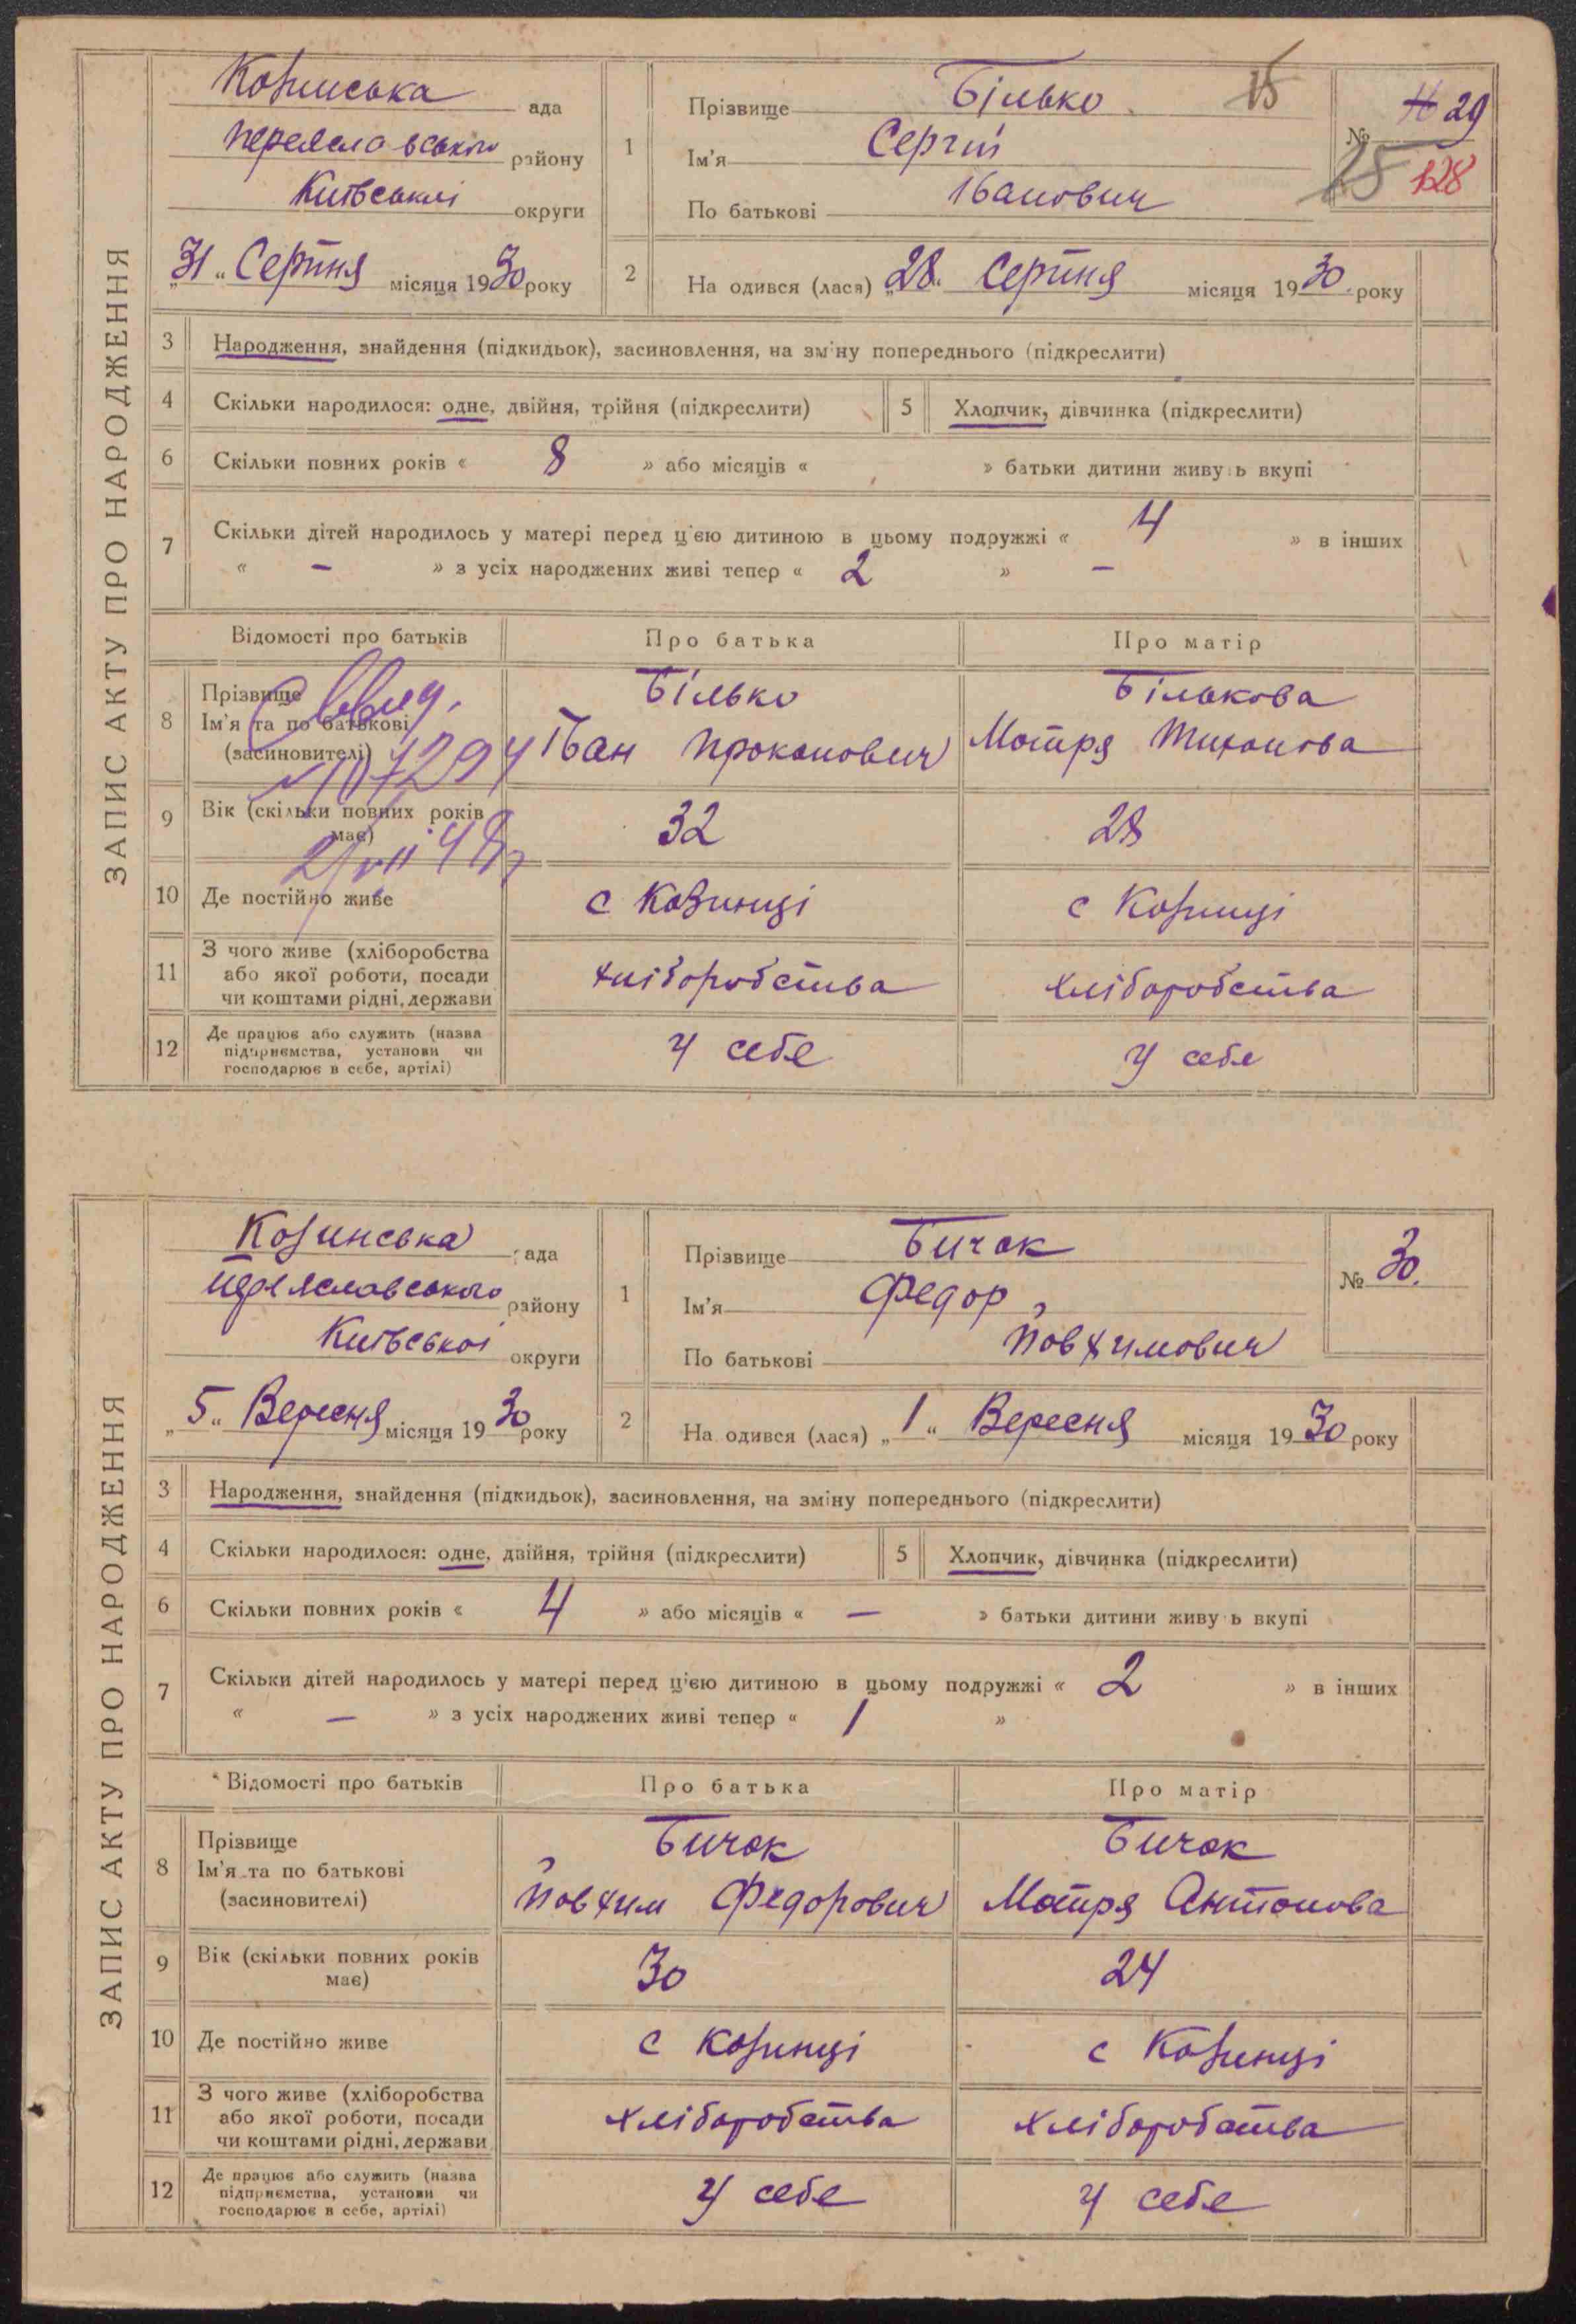 ЗАПИС АКТУ ПРО НАРОДЖЕННЯ
Козинська ада
Переяславського району
Київської округи
„31“ Серпня місяця 1930 року
1
Прізвище Білько 15
Ім'я Сергій
По батькові Іванович
№ 29
128
2
На одився (лася) „28“ Серпня місяця 1930 року
3 Народження, знайдення (підкидьок), засиновлення, на зміну попереднього (підкреслити)
4 Скільки народилося: одне, двійня, трійня (підкреслити) 5 Хлопчик, дівчинка (підкреслити)
6 Скільки повних років « 8 » або місяців « » батьки дитини живу ь вкупі
7 Скільки дітей народилось у матері перед цією дитиною в цьому подружжі « 4 » в інших
« – » з усіх народжених живі тепер « 2 » –
Відомості про батьків Про батька Про матір
8 Прізвище Білько Бількова
Ім'я та по батькові Іван Прокопович Мотря
(засиновителі)
9 Вік (скільки повних років має) 32 28
10 Де постійно живе с Козинці с Козинці
11 З чого живе (хліборобства
або якої роботи, посади хліборобства хліборобства
чи коштами рідні, держави
12 Де працює або служить (назва
підприємства, установи чи у себе у себе
господарює в себе, артілі)
ЗАПИС АКТУ ПРО НАРОДЖЕННЯ
Козинська ада
Переяславського району
Київської округи
„5“ Вересня місяця 1930 року
1
Прізвище Бичок
Ім'я Федор
По батькові Йовхимович
№ 30.
2
На одився (лася) „1“ Вересня місяця 1930 року
3 Народження, знайдення (підкидьок), засиновлення, на зміну попереднього (підкреслити)
4 Скільки народилося: одне, двійня, трійня (підкреслити) 5 Хлопчик, дівчинка (підкреслити)
6 Скільки повних років « 4 » або місяців « – » батьки дитини живу ь вкупі
7 Скільки дітей народилось у матері перед цією дитиною в цьому подружжі « 2 » в інших
« – » з усіх народжених живі тепер « 1 »
Відомості про батьків Про батька Про матір
8 Прізвище Бичок Бичок
Ім'я та по батькові Йовхим Федорович Мотря Антонова
(засиновителі)
9 Вік (скільки повних років має) 30 24
10 Де постійно живе с Козинці с Козинці
11 З чого живе (хліборобства
або якої роботи, посади хліборобства хліборобства
чи коштами рідні, держави
12 Де працює або служить (назва
підприємства, установи чи у себе у себе
господарює в себе, артілі)